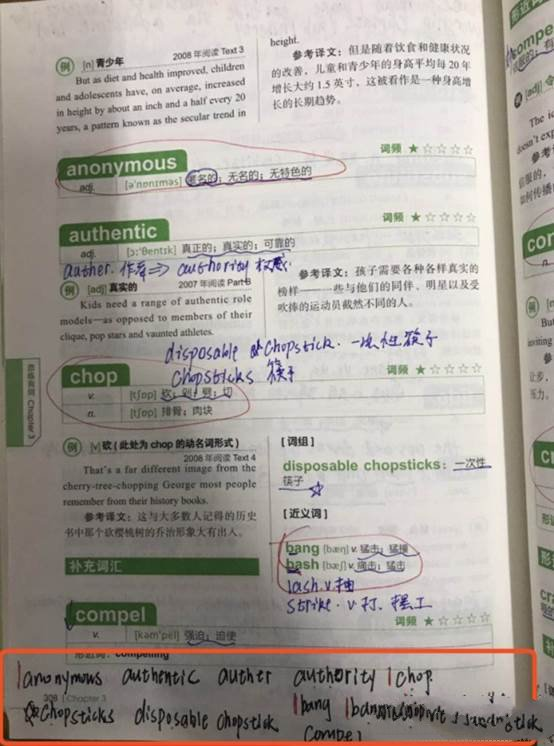 例 [n] 青少年 2008 年阅读 Text 3
But as diet and health improved, children
and adolescents have, on average, increased
in height by about an inch and a half every 20
years, a pattern known as the secular trend in
height.
参考译文：但是随着饮食和健康状况
的改善，儿童和青少年的身高平均每 20 年
增长大约 1.5 英寸，这被看作是一种身高增
长的长期趋势。
anonymous 词频 ★☆☆☆☆
adj. [ə'nɒnɪməs] 匿名的；无名的；无特色的
authentic 词频 ★☆☆☆☆
adj. [ɔː'θentɪk] 真正的；真实的；可靠的
auther. 作者 ⇒ authority 权威.
例 [adj] 真实的 2007 年阅读 Part B
Kids need a range of authentic role
models—as opposed to members of their
clique, pop stars and vaunted athletes.
参考译文：孩子需要各种各样真实的
榜样——一些与他们的同伴、明星以及受
吹捧的运动员截然不同的人。
disposable chopstick. 一次性筷子
chopsticks 筷子
chop 词频 ★☆☆☆☆
v. [tʃɒp] 砍；剁；劈；切
n. [tʃɒp] 排骨；肉块
恋练有词 Chapter 3
例 砍（此处为 chop 的动名词形式）
2008 年阅读 Text 4
That's a far different image from the
cherry-tree-chopping George most people
remember from their history books.
参考译文：这与大多数人记得的历史
书中那个砍樱桃树的乔治形象大有出入。
[词组]
disposable chopsticks：一次性
筷子
[近义词]
bang [bæŋ] v. 猛击；猛撞
bash [bæʃ] v. 痛击；猛击
lash. v. 抽
strike. v. 打、罢工
补充词汇
compel 词频 ★☆☆☆☆
v. [kəm'pel] 强迫；迫使
形近词：compelling
anonymous authentic auther authority chop
308 | Chapter 3
chopsticks disposable chopstick bang
compel